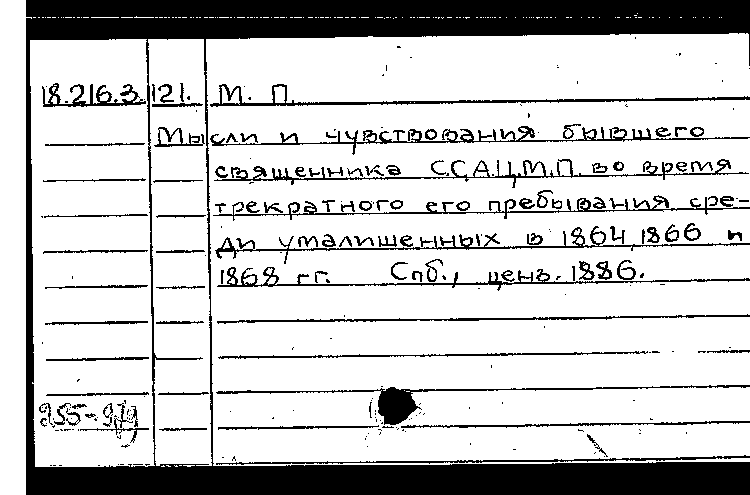 18.216.3.121. М. П.
Мысли и чувствования бывшего
священника С.С.А.Ц.М.П. во время
трекратного его пребывания сре-
ди умалишенных в 1864, 1866 и
1868 гг. Спб., ценз. 1886.